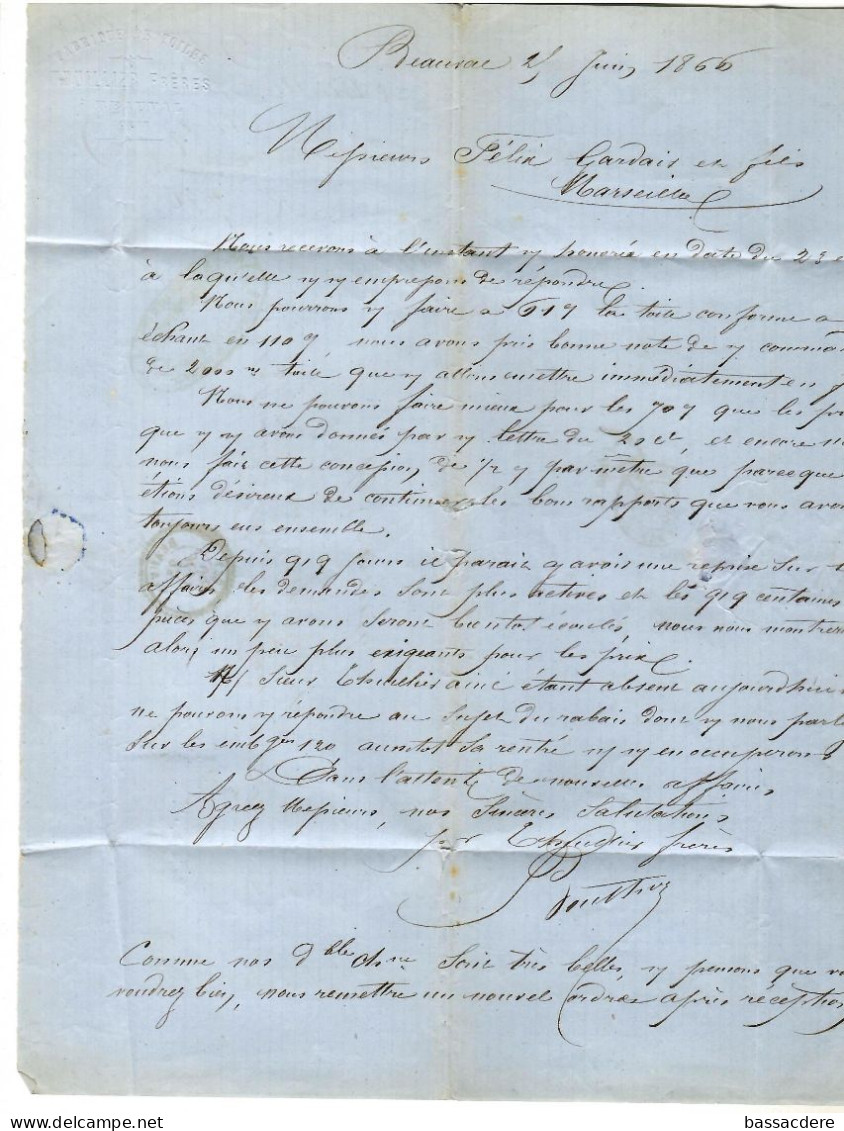 FABRIQUE DE TOILES
FRÈRES
Beauval 25 Juin 1866
Messieurs Félix Gardair et fils
Marseille
Nous recevons à l'instant v/ honorée en date du 23 c
à laqu'elle n/ n/ empressons de répondre.
Nous pourrons v/ faire à la toile conforme a
échant en 110 nous avons pris bonne note de v/ comma
de 2000 m toile que n/ allons emettre immédiatement en f
Nous ne pouvons faire mieux pour les 70 que les pri
que n/ v/ avons donnés par n/ lettre du 20 ct, et encore
nous fais cette concession, de 1/2 par mètre que parceque
étions désireux de continuer les bons rapports que nous avon
toujours eus ensemble.
Depuis qlq jours il parait y avoir une reprise sur l
affaires les demandes sont plus actives et les qlq centaines
pièces que n/ avons seront bientot écoulés nous nous montrer
alors un peu plus exigeants pour les prix.
N/ Sieur Thuillier ainé étant absent aujourdhui
ne pouvons v/ répondre au sujet du rabais dont v/ nous parle
sur les emb ges 120 aussitot sa rentré n/ n/ en occuperons
Dans l'attente de nouvelles affaires
Agréez Messieurs, nos Sincères Salutations
pr Thuillier frères
Comme nos d ble ch ne sont très belles, n/ pensons que vo
voudrez bien nous remettre un nouvel ordre après réception
bassacdere